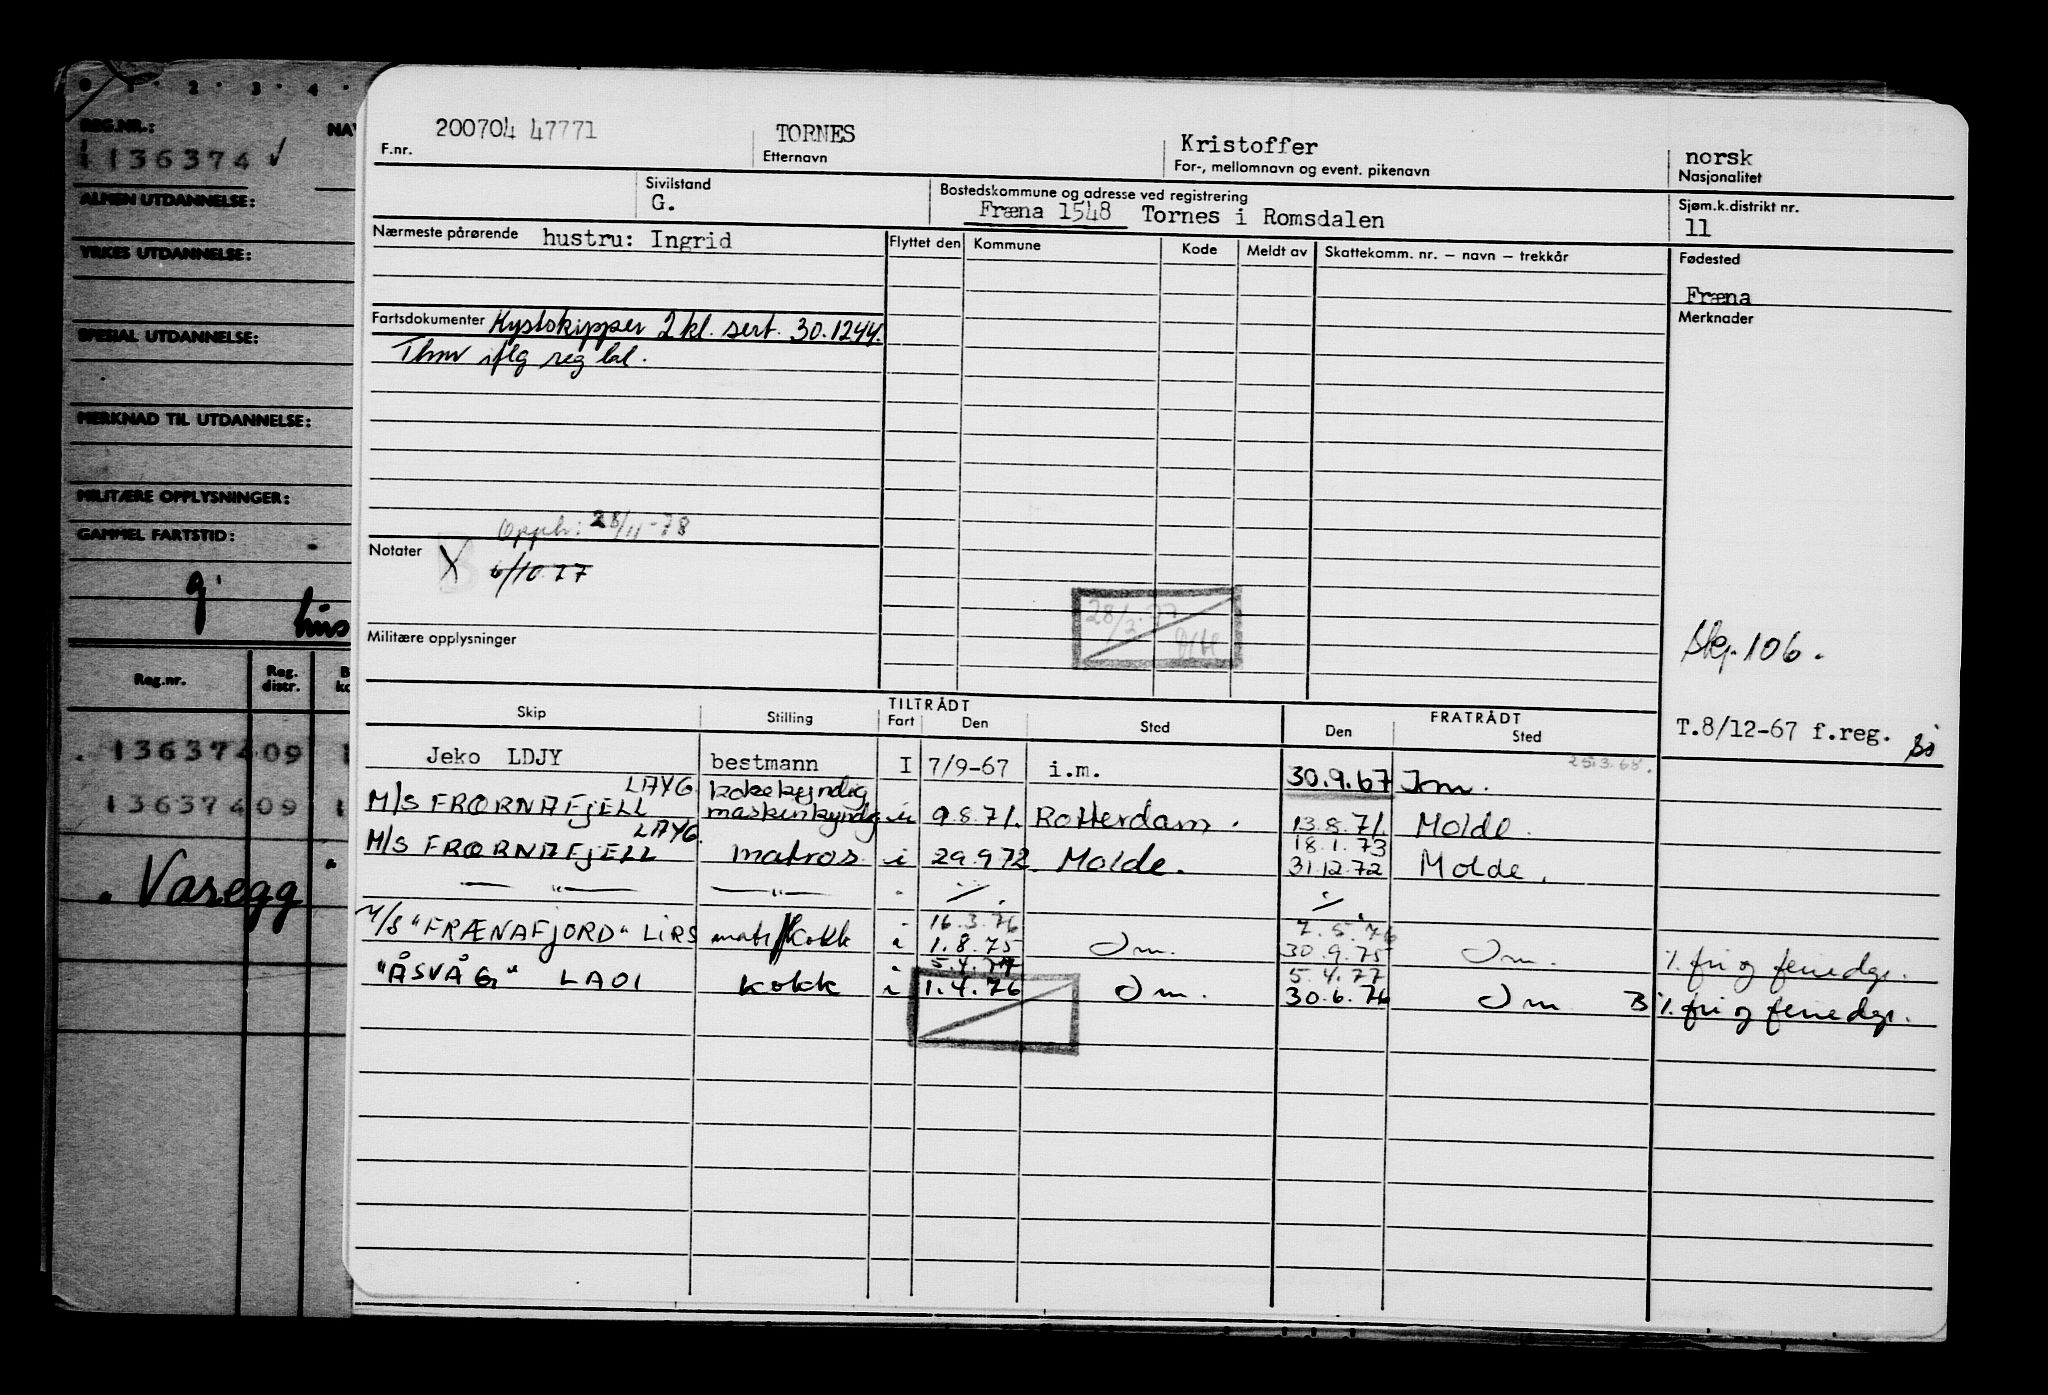 0 · 1 · 2 · 3 · 4 ·
REG.NR.:
1136374 ✓
ALMEN UTDANNELSE:
YRKES UTDANNELSE:
SPESIAL UTDANNELSE:
MERKNAD TIL UTDANNELSE:
MILITÆRE OPPLYSNINGER:
GAMMEL FARTSTID:
g.
Reg.nr. Reg. distr.
13637409
13637409
Varegg
200704 47771 TORNES Kristoffer norsk
F.nr. Etternavn For-, mellomnavn og event. pikenavn Nasjonalitet
Sivilstand Bostedskommune og adresse ved registrering Sjøm.k.distrikt nr.
G. Fræna 1548 Tornes i Romsdalen 11
Nærmeste pårørende hustru: Ingrid Flyttet den Kommune Kode Meldt av Skattekomm. nr. – navn – trekkår Fødested
Fræna
Fartsdokumenter Kystskipper 2 kl. sert. 30.1244. Merknader
iflg reg
Opph: 28/11-78
Notater X 6/10.77
28/3.77
Militære opplysninger
106.
T.8/12-67 f.reg.
Skip Stilling TILTRÅDT Fart Den Sted FRATRÅDT Den Sted
Jeko LDJY bestmann I 7/9-67 i.m. 30.9.67 Im. 25.3.68.
M/S FRŒRNAFJELL LAYG kokekyndig maskinkyndig u 9.8.71. Rotterdam. 13.8.71. Molde.
18.1.73
M/S FRŒRNAFJELL LAYG. matros i 29.9.72. Molde. 31.12.72 Molde.
— " — — " —
16.3.76 7.5.76
M/S "FRÆNAFJORD" LIRS matr/kokk i 1.8.75 Im. 30.9.75 Im. %. fri og feriedgr.
5.4.77 5.4.77
"ÅSVÅG" LAOI kokk i 1.4.76 Im. 30.6.76 Im B %. fri og feriedgr.